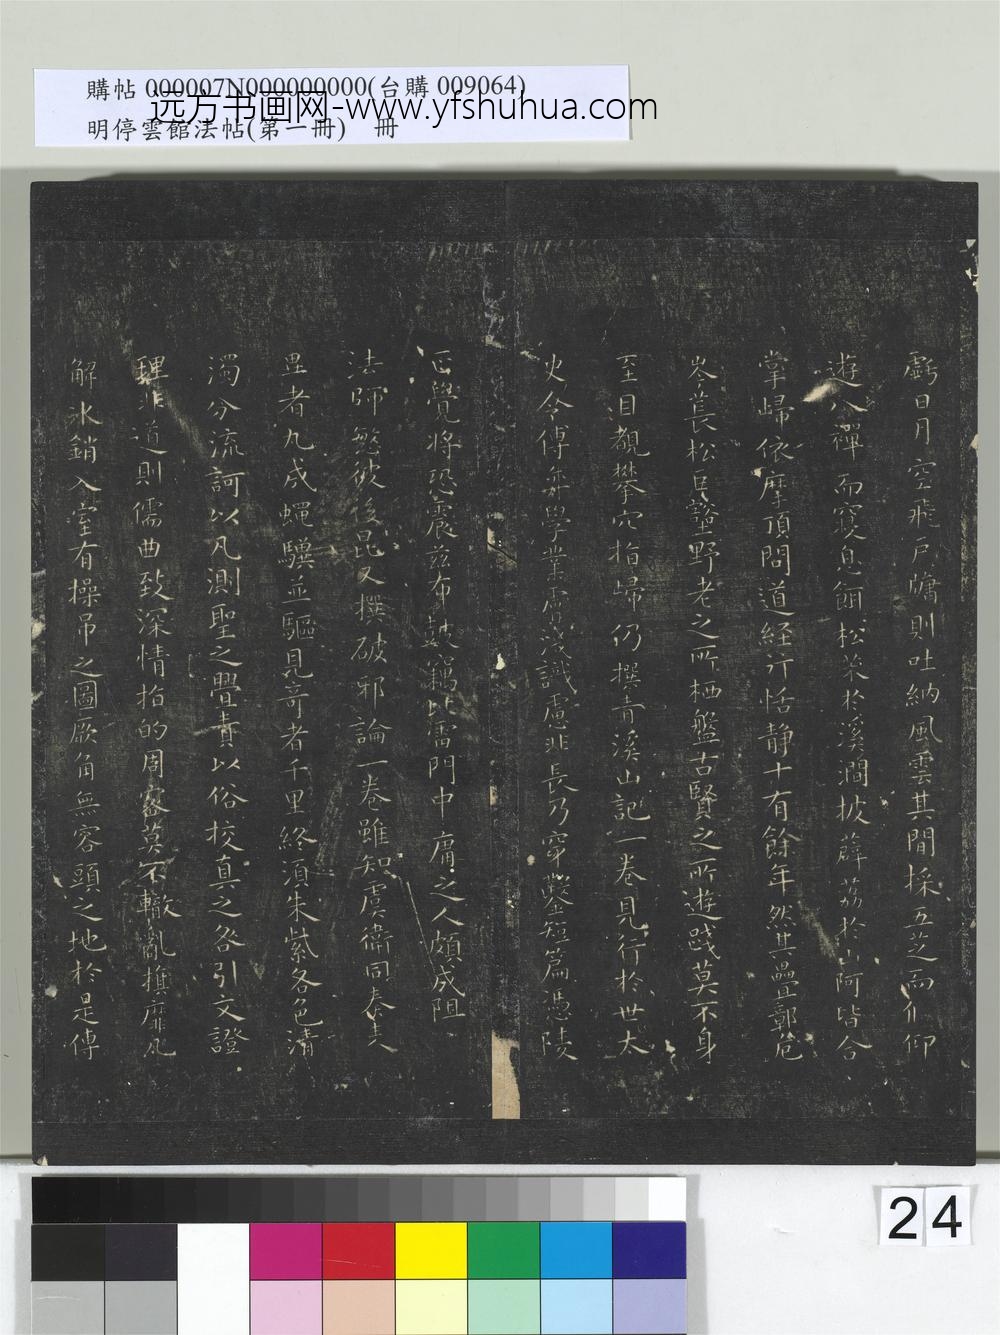 購帖 000007N000000000(台購 009064)
远方书画网-www.yfshuhua.com
明停雲館法帖(第一冊) 冊
虧日月空飛戶牖則吐納風雲其間採五芝而偃仰
遊八禪而寢息餌松朮於溪澗披薜荔於山阿皆合
掌歸依摩頂問道經行恬靜十有餘年然其疊鄣危
岑長松巨壑野老之所栖盤古賢之所遊踐莫不身
至目覩攀穴指歸仍撰青溪山記一卷見行於世太
史令傅弈學業膚淺識慮非長乃穿鑿短篇憑陵
正覺將恐震茲布鼓竊比雷門中庸之人頗成阻
法師愍彼後昆又撰破邪論一卷雖知虞衛同奏表
異者九成蠅驥並驅見奇者千里終須朱紫各色清
濁分流訶以凡測聖之舋責以俗校真之咎引文證
理非道則儒曲致深情指的周密莫不轍亂旗靡瓦
解冰銷入室有操吊之圖厥角無容頭之地於是傳
24